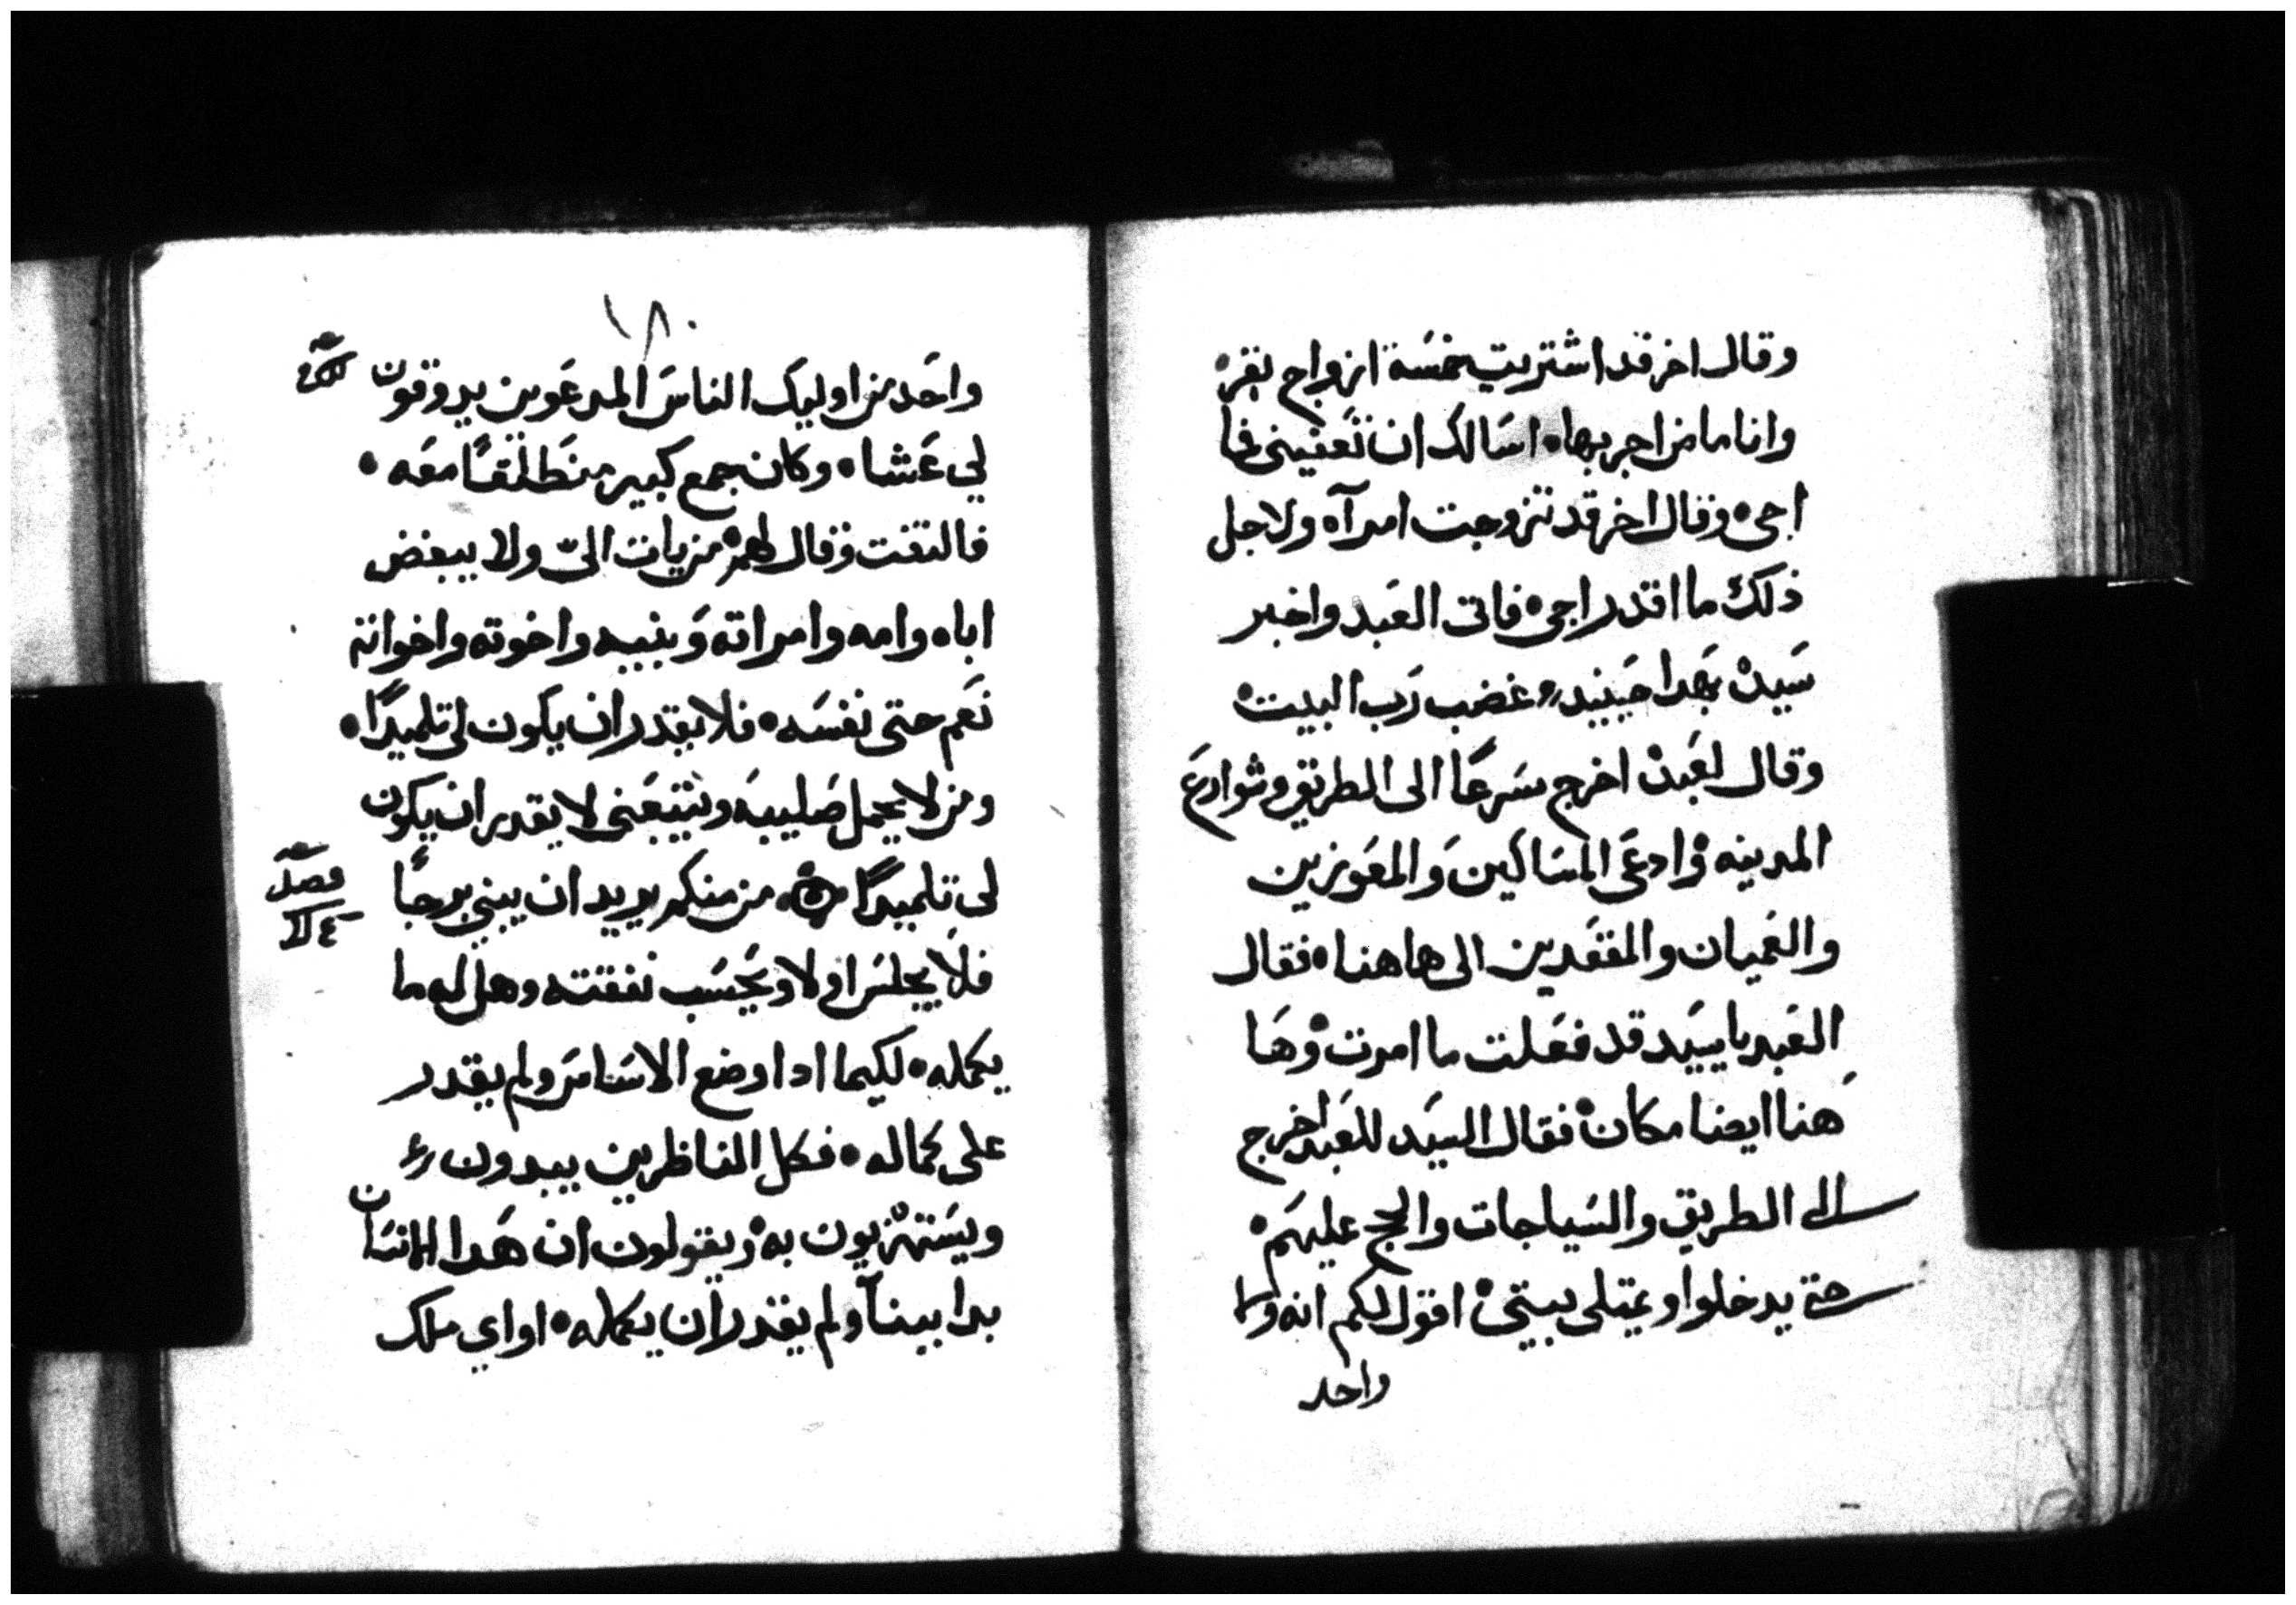 وقال اخر قد اشتريت خمسة ازواج بقر
وانا ماض اجربها اسالك ان تعفيني فما
اجي وقال اخر قد تزوجت امرآه ولاجل
ذلك ما اقدر اجي فاتى العبد واخبر
سيده بهدا حينيد غضب رب البيت
وقال لعبده اخرج سرعًا الى الطريق وشوارع
المدينه وادعى المساكين والمعوزين
والعميان والمقعدين الى هاهنا فقال
العبد يا سيد قد فعلت ما امرت وها
هنا ايضا مكان فقال السيد للعبد اخرج
الى الطريق والسياجات والج عليهم
حتى يدخلوا ويمتلى بيتي اقول لكم انه ولا
واحد
١٨٠
واحد من اوليك الناس المدعوين يدوقون
لي عشاء وكان جمع كبير منطلقًا معه
فالتفت وقال لهم من يات اليّ ولا يبغض
اباه وامه وامراته وبنيه واخوته واخواته
نعم حتى نفسه فلا يقدر ان يكون لي تلميدًا
ومن لا يحمل صليبه ويتبعني لا يقدر ان يكون
لي تلميدًا من منكم يريد ان يبني برجًا
فصل
فلا يجلس اولا ويحسب نفقته وهل له ما
يكمله لكيما ادا وضع الاساس ولم يقدر
على كماله فكل الناظرين يبدون
ويستهزيون به ويقولون ان هدا الانسان
بدا ببنآ ولم يقدر ان يكمله او اي ملك